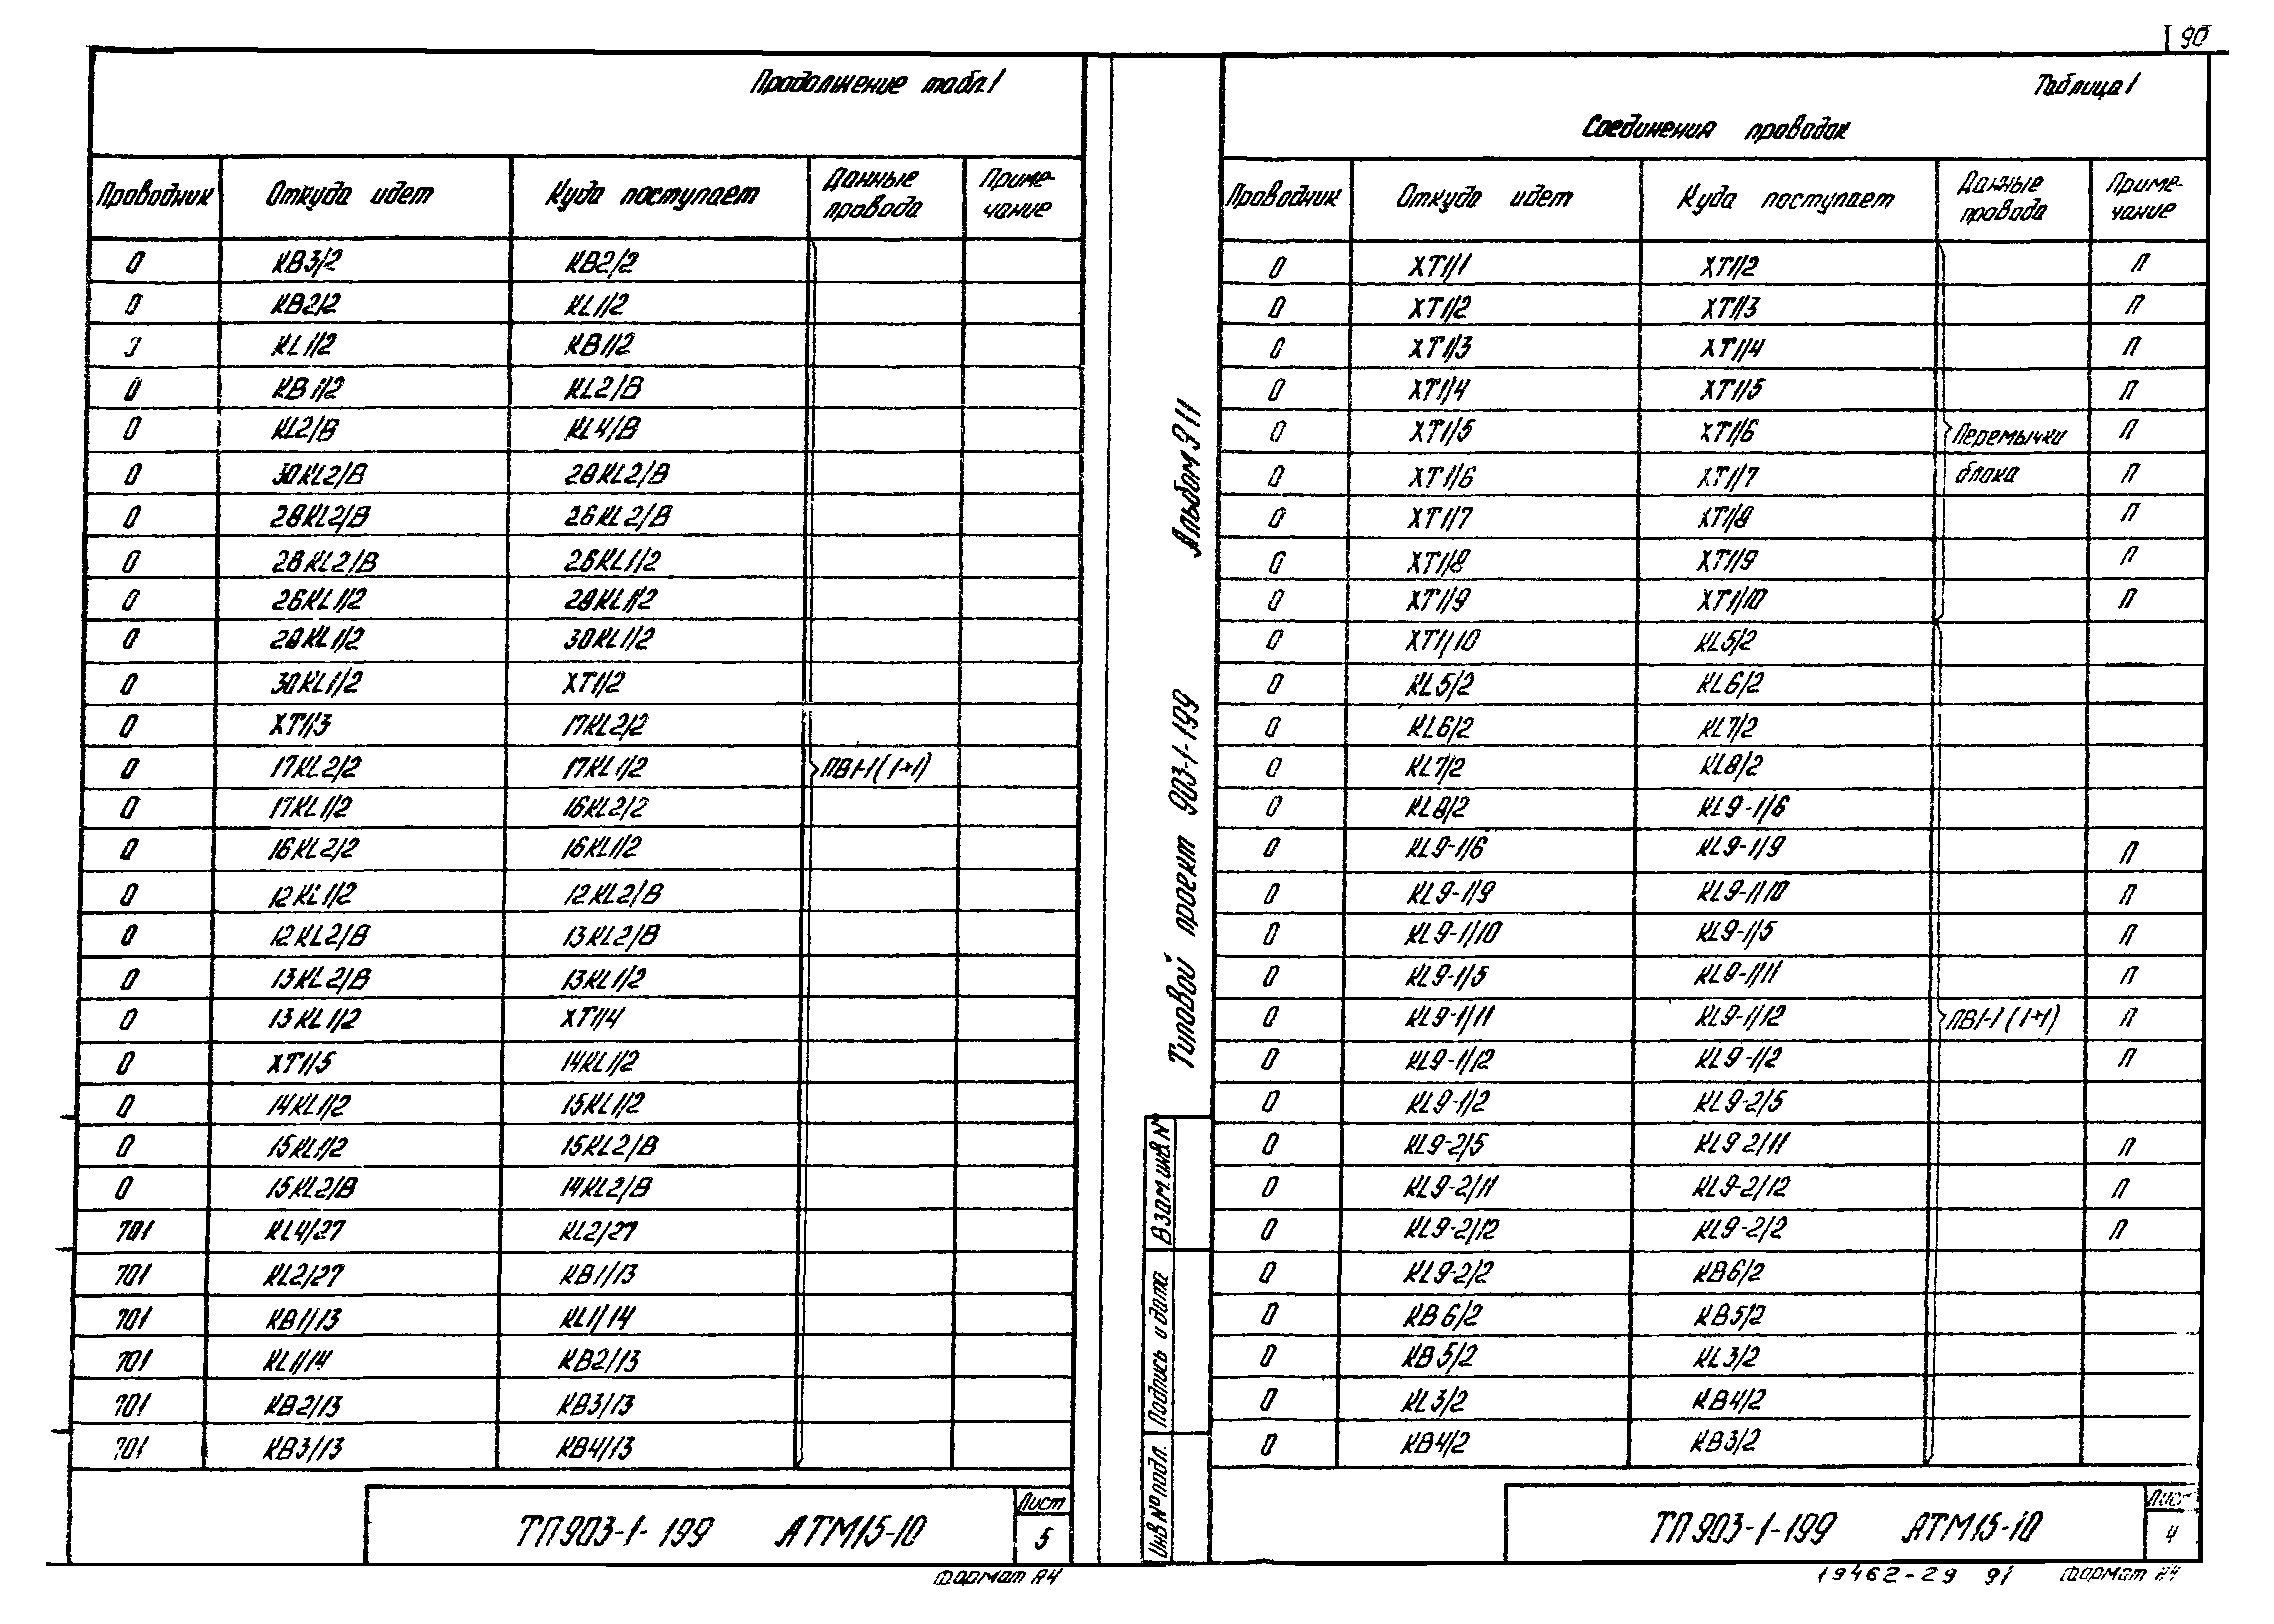 90
Продолжение табл.1
Проводник Откуда идет Куда поступает Данные провода Примечание
0 КВ3/2 КВ2/2
0 КВ2/2 KL1/2
0 KL1/2 КВ1/2
0 КВ1/2 KL2/В
0 KL2/В KL4/В
0 30KL2/В 28KL2/В
0 28KL2/В 26KL2/В
0 26KL2/В 26KL1/2
0 26KL1/2 28KL1/2
0 28KL1/2 30KL1/2
0 30KL1/2 ХТ1/2
0 ХТ1/3 17KL2/2
0 17KL2/2 17KL1/2 ПВ1-1(1*1)
0 17KL1/2 16KL2/2
0 16KL2/2 16KL1/2
0 12KL1/2 12KL2/В
0 12KL2/В 13KL2/В
0 13KL2/В 13KL1/2
0 13KL1/2 ХТ1/4
0 ХТ1/5 14KL1/2
0 14KL1/2 15KL1/2
0 15KL1/2 15KL2/В
0 15KL2/В 14KL2/В
701 KL4/27 KL2/27
701 KL2/27 КВ1/13
701 КВ1/13 KL1/14
701 KL1/14 КВ2/13
701 КВ2/13 КВ3/13
701 КВ3/13 КВ4/13
ТП903-1-199 АТМ15-10
Лист
5
Формат А4
Альбом 3 11
Типовой проект 903-1-199
Взам.инв.№
Подпись и дата
Инв № подл.
Таблица 1
Соединения проводок
Проводник Откуда идет Куда поступает Данные провода Примечание
0 ХТ1/1 ХТ1/2 П
0 ХТ1/2 ХТ1/3 П
0 ХТ1/3 ХТ1/4 П
0 ХТ1/4 ХТ1/5 П
0 ХТ1/5 ХТ1/6 Перемычки П
0 ХТ1/6 ХТ1/7 блока П
0 ХТ1/7 ХТ1/8 П
0 ХТ1/8 ХТ1/9 П
0 ХТ1/9 ХТ1/10 П
0 ХТ1/10 KL5/2
0 KL5/2 KL6/2
0 KL6/2 KL7/2
0 KL7/2 KL8/2
0 KL8/2 KL9-1/6
0 KL9-1/6 KL9-1/9 П
0 KL9-1/9 KL9-1/10 П
0 KL9-1/10 KL9-1/5 П
0 KL9-1/5 KL9-1/11 П
0 KL9-1/11 KL9-1/12 ПВ1-1(1*1) П
0 KL9-1/12 KL9-1/2 П
0 KL9-1/2 KL9-2/5
0 KL9-2/5 KL9-2/11 П
0 KL9-2/11 KL9-2/12 П
0 KL9-2/12 KL9-2/2 П
0 KL9-2/2 КВ6/2
0 КВ6/2 КВ5/2
0 КВ5/2 KL3/2
0 KL3/2 КВ4/2
0 КВ4/2 КВ3/2
ТП903-1-199 АТМ15-10
Лист
4
19462-29 91 Формат А4